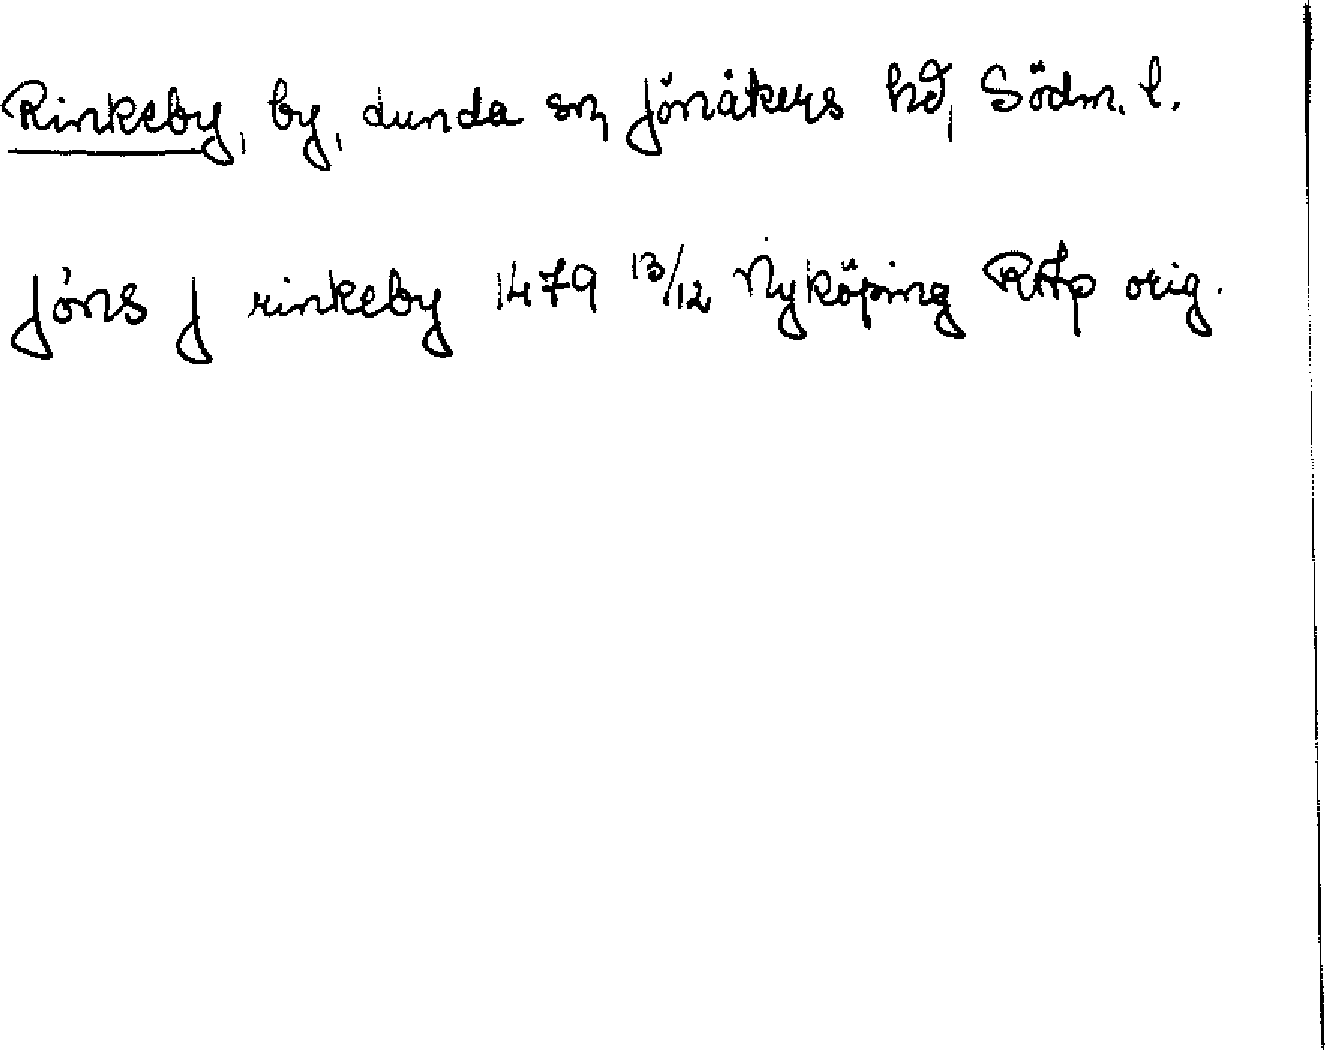 Rinkeby, by, Lunda sn, Jönåkers hd, Södm. l.
Jöns j rinkeby 1479 13/12 Nyköping RAp orig.